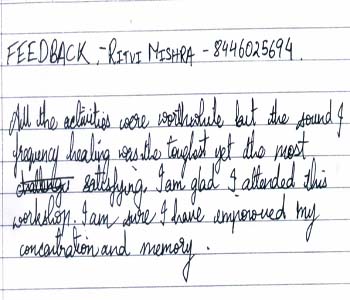 FEEDBACK - RITVI MISHRA - 8446025694.
All the activities were worthwhile but the sound &
frequency healing was the toughest yet the most
satisfying. I am glad I attended this
workshop. I am sure I have improved my
concentration and memory.